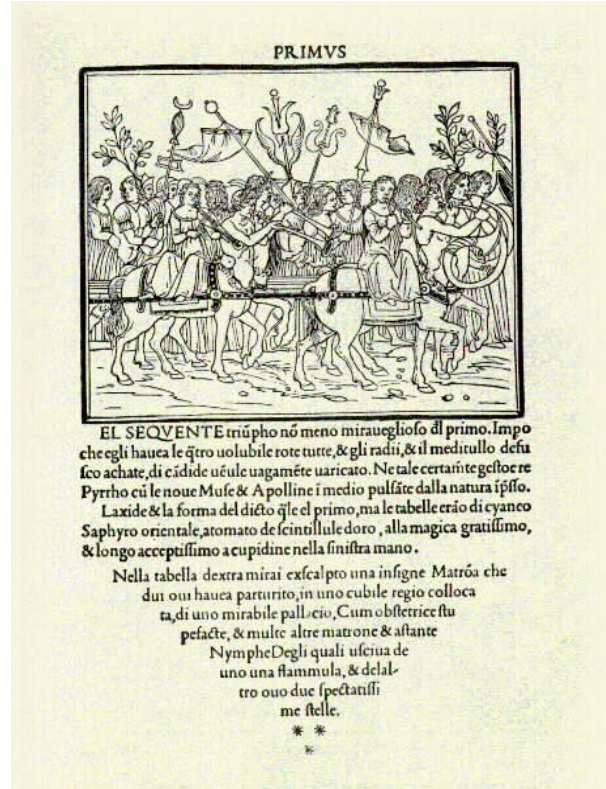 PRIMVS
EL SEQVENTE triũpho nõ meno miraueglioso dl primo. Impo
che egli hauea le q̃tro uolubile rote tutte, & gli radii, & il meditullo defu
sco achate, di cãdide uẽule uagamẽte uaricato. Ne tale certam̃te gestoe re
Pyrrho cũ le noue Muse & Apolline ĩ medio pulsãte dalla natura ĩp̃sso.
Laxide & la forma del dicto q̃le el primo, ma le tabelle erão di cyaneo
Saphyro orientale, atomato de scintillule doro, alla magica gratissimo,
& longo acceptissimo a cupidine nella sinistra mano.
Nella tabella dextra mirai exscalpto una insigne Matrõa che
dui oui hauea parturito, in uno cubile regio colloca
ta, di uno mirabile pallacio, Cum obstetrice stu
pefacte, & multe altre matrone & astante
Nymphe Degli quali usciua de
uno una flammula, & delal-
tro ouo due spectatissi
me stelle.
* *
*